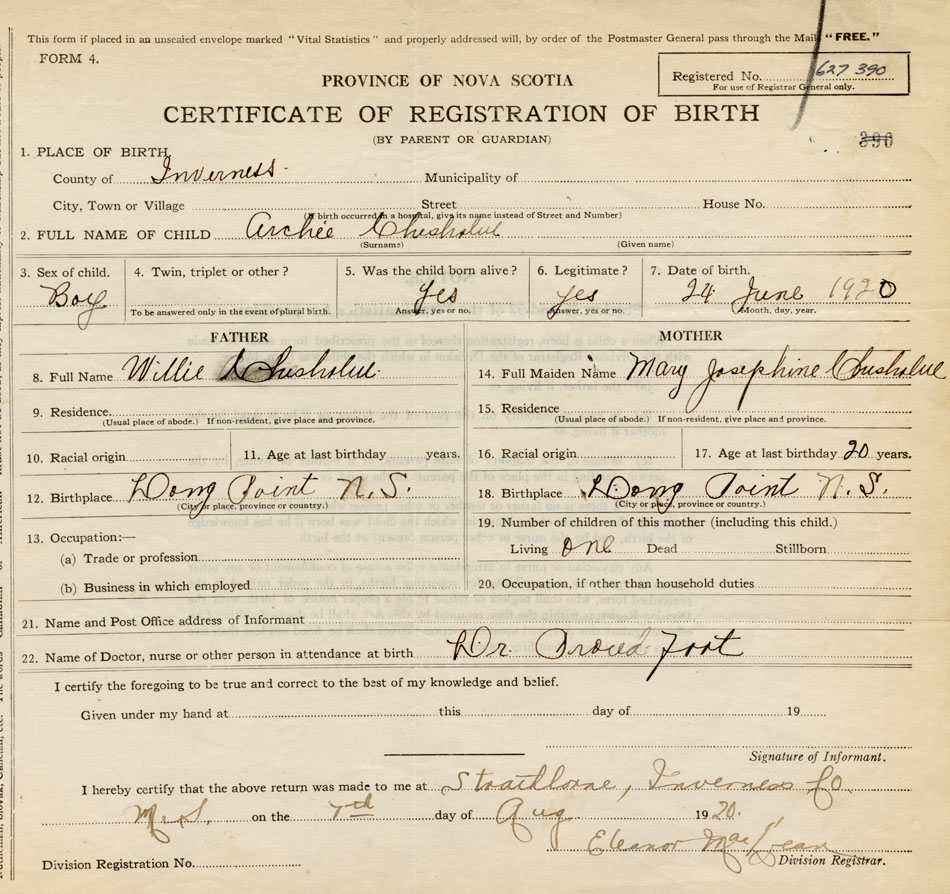 This form if placed in an unsealed envelope marked "Vital Statistics" and properly addressed will, by order of the Postmaster General pass through the Mail "FREE."
FORM 4.
PROVINCE OF NOVA SCOTIA
Registered No. 627 390
For use of Registrar General only.
CERTIFICATE OF REGISTRATION OF BIRTH
(BY PARENT OR GUARDIAN)
390
1. PLACE OF BIRTH
County of Inverness Municipality of
City, Town or Village Street House No.
(If birth occurred in a hospital, give its name instead of Street and Number)
2. FULL NAME OF CHILD Archie Chisholm
(Surname) (Given name)
3. Sex of child. 4. Twin, triplet or other? 5. Was the child born alive? 6. Legitimate? 7. Date of birth.
Boy Yes Yes 24 June 1920
To be answered only in the event of plural birth. Answer, yes or no. Answer, yes or no. (Month, day, year.
FATHER MOTHER
8. Full Name Willie Chisholm 14. Full Maiden Name Mary Josephine Chisholm
9. Residence. 15. Residence
(Usual place of abode.) If non-resident, give place and province. (Usual place of abode.) If non-resident, give place and province.
10. Racial origin 11. Age at last birthday years. 16. Racial origin 17. Age at last birthday 20 years.
12. Birthplace Long Point N.S. 18. Birthplace Long Point N.S.
(City or place, province or country.) (City or place, province or country.)
13. Occupation:— 19. Number of children of this mother (including this child.)
(a) Trade or profession Living one Dead Stillborn
(b) Business in which employed 20. Occupation, if other than household duties
21. Name and Post Office address of Informant
22. Name of Doctor, nurse or other person in attendance at birth Dr. Proud Foot
I certify the foregoing to be true and correct to the best of my knowledge and belief.
Given under my hand at this day of 19
Signature of Informant.
I hereby certify that the above return was made to me at Strathlorne, Inverness Co
N.S. on the 7th day of Aug 1920.
Eleanor MacLean
Division Registration No. Division Registrar.